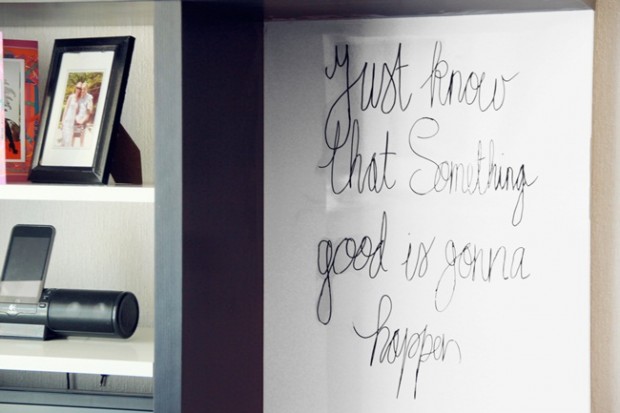 Just know
that Something
good is gonna
happen